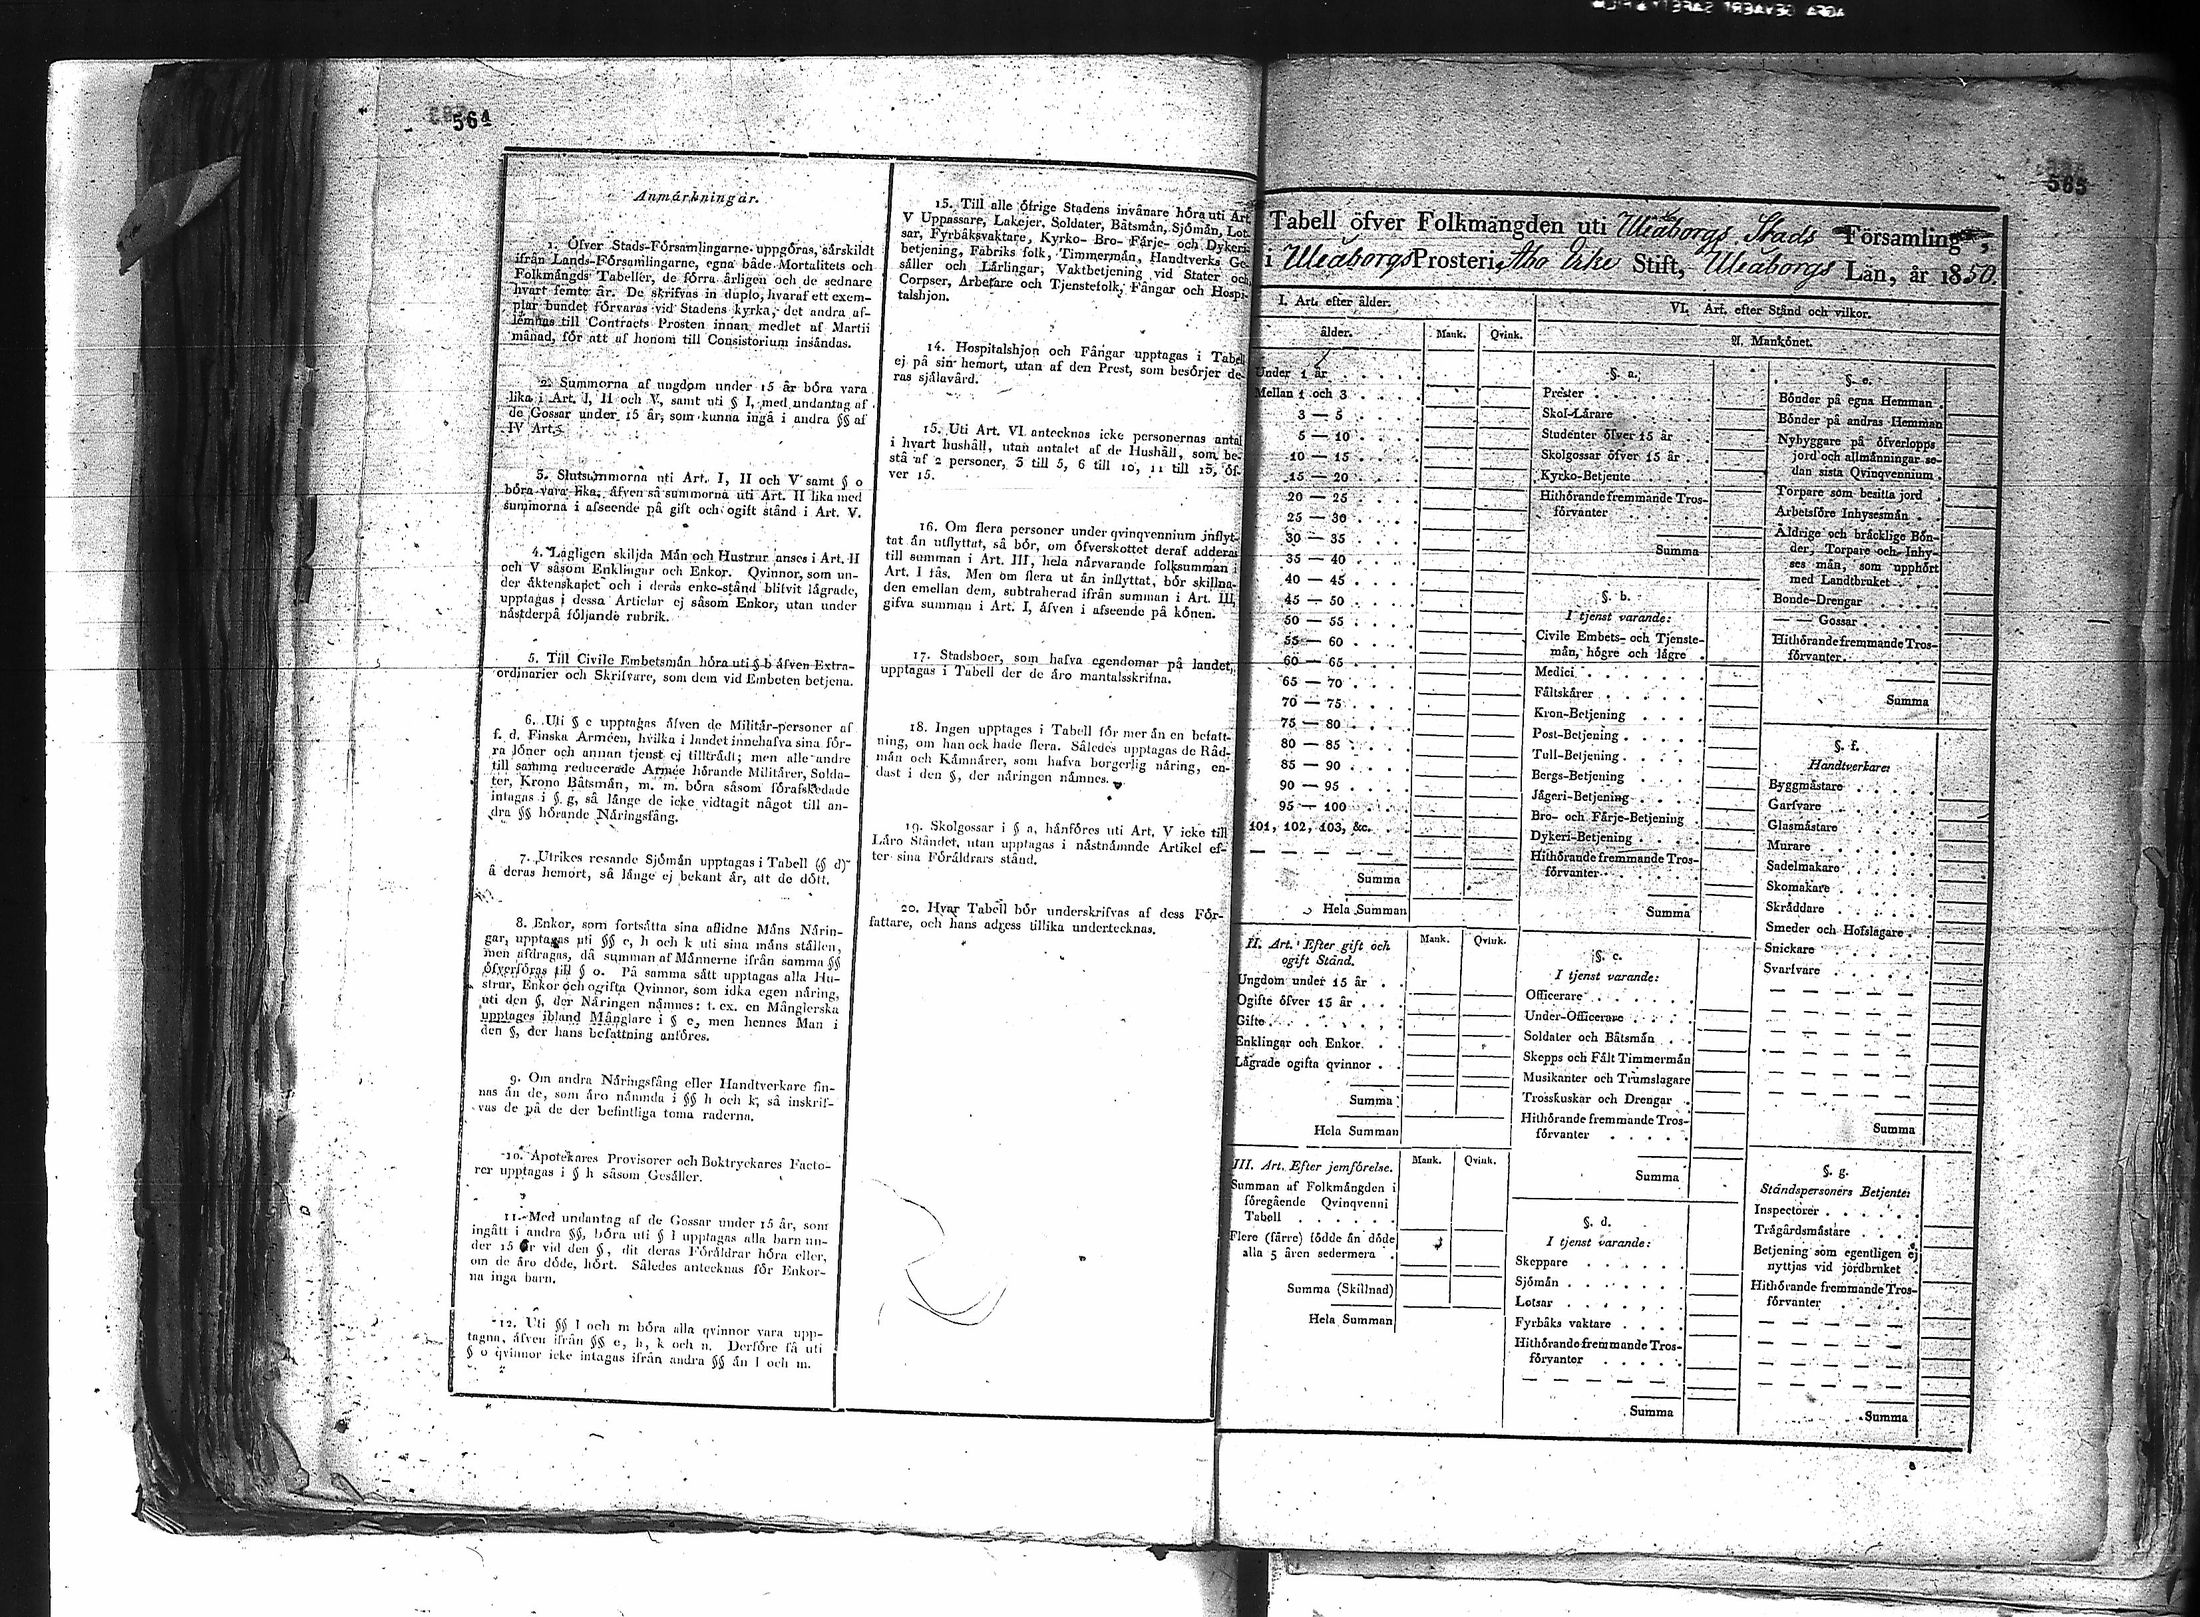 564
Anmärkningar.
1. Öfver Stads-Församlingarne uppgöras, särskildt
ifrån Lands-Församlingarne, egna både Mortalitets och
Folkmängds Tabeller, de förra årligen och de sednare
hvart femte år. De skrifvas in duplo, hvaraf ett exem-
plar bundet förvaras vid Stadens kyrka, det andra af-
lemnas till Contracts Prosten innan medlet af Martii
månad, för att af honom till Consistorium insändas.
2. Summorna af ungdom under 15 år böra vara
lika i Art. I, II och V, samt uti § I, med undantag af
de Gossar under 15 år, som kunna ingå i andra §§ af
IV Art.
3. Slutsummorna uti Art. I, II och V samt § o
böra vara lika, äfven så summorna uti Art. II lika med
summorna i afseende på gift och ogift stånd i Art. V.
4. Lagligen skiljda Män och Hustrur anses i Art. II
och V såsom Enklingar och Enkor. Qvinnor, som un-
der äktenskapet och i deras enke-stånd blifvit lägrade,
upptagas i dessa Articlar ej såsom Enkor, utan under
nästderpå följande rubrik.
5. Till Civile Embetsmän höra uti § b äfven Extra-
ordinarier och Skrifvare, som dem vid Embeten betjena.
6. Uti § c upptagas äfven de Militär-personer af
f. d. Finska Arméen, hvilka i landet innehafva sina för-
ra löner och annan tjenst ej tillträdt; men alle andre
till samma reducerade Armée hörande Militärer, Solda-
ter, Krono Båtsmän, m. m. böra såsom förafskedade
intagas i § g, så länge de icke vidtagit något till an-
dra §§ hörande Näringsfång.
7. Utrikes resande Sjömän upptagas i Tabell (§ d)
å deras hemort, så länge ej bekant är, att de dödt.
8. Enkor, som fortsätta sina aflidne Mäns Närin-
gar, upptagas uti §§ e, h och k uti sina mäns ställen,
men afdragas, då summan af Männerne ifrån samma §§
öfverföras till § o. På samma sätt upptagas alla Hu-
strur, Enkor och ogifta Qvinnor, som idka egen näring,
uti den §, der Näringen nämnes: t. ex. en Månglerska
upptages ibland Månglare i § e, men hennes Man i
den §, der hans befattning anföres.
9. Om andra Näringsfång eller Handtverkare fin-
nas än de, som äro nämnda i §§ h och k, så inskrif-
vas de på de der befintliga toma raderna.
10. Apotekares Provisorer och Boktryckares Facto-
rer upptagas i § h såsom Gesäller.
11. Med undantag af de Gossar under 15 år, som
ingått i andra §§, böra uti § l upptagas alla barn un-
der 15 år vid den §, dit deras Föräldrar höra eller,
om de äro döde, hört. Således antecknas för Enkor-
na inga barn.
12. Uti §§ l och m böra alla qvinnor vara upp-
tagna, äfven ifrån §§ e, h, k och n. Derföre få uti
§ o qvinnor icke intagas ifrån andra §§ än l och m.
15. Till alle öfrige Stadens invånare höra uti Art.
V Uppassare, Lakejer, Soldater, Båtsmän, Sjömän, Lot-
sar, Fyrbåksvaktare, Kyrko- Bro- Färje- och Dykeri-
betjening, Fabriks folk, Timmermän, Handtverks Ge-
säller och Lärlingar, Vaktbetjening vid Stater och
Corpser, Arbetare och Tjenstefolk, Fångar och Hospi-
talshjon.
14. Hospitalshjon och Fångar upptagas i Tabell
ej på sin hemort, utan af den Prest, som besörjer de-
ras själavård.
15. Uti Art. VI antecknas icke personernas antal
i hvart hushåll, utan antalet af de Hushåll, som be-
stå af 2 personer, 3 till 5, 6 till 10, 11 till 15, öf-
ver 15.
16. Om flera personer under qvinqvennium inflyt-
tat än utflyttat, så bör, om öfverskottet deraf adderas
till summan i Art. III, hela närvarande folksumman i
Art. I fås. Men om flera ut än inflyttat, bör skillna-
den emellan dem, subtraherad ifrån summan i Art. III,
gifva summan i Art. I, äfven i afseende på könen.
17. Stadsboer, som hafva egendomar på landet,
upptagas i Tabell der de äro mantalsskrifna.
18. Ingen upptages i Tabell för mer än en befatt-
ning, om han ock hade flera. Således upptagas de Råd-
män och Kämnärer, som hafva borgerlig näring, en-
dast i den §, der näringen nämnes.
19. Skolgossar i § a, hänföres uti Art. V icke till
Läro Ståndet, utan upptagas i nästnämnde Artikel ef-
ter sina Föräldrars stånd.
20. Hvar Tabell bör underskrifvas af dess För-
fattare, och hans adress tillika undertecknas.
565
Tabell öfver Folkmängden uti Uleåborgs Stads Församling,
i Uleåborgs Prosteri, Åbo Erke Stift, Uleåborgs Län, år 1830.
I. Art. efter ålder.
ålder. Mank. Qvink.
Under 1 år
Mellan 1 och 3
3 — 5
5 — 10
10 — 15
15 — 20
20 — 25
25 — 30
30 — 35
35 — 40
40 — 45
45 — 50
50 — 55
55 — 60
60 — 65
65 — 70
70 — 75
75 — 80
80 — 85
85 — 90
90 — 95
95 — 100
101, 102, 103, &c.
Summa
Hela Summan
II. Art. Efter gift och
ogift Stånd. Mank. Qvink.
Ungdom under 15 år
Ogifte öfver 15 år
Gifte
Enklingar och Enkor
Lägrade ogifta qvinnor
Summa
Hela Summan
III. Art. Efter jemförelse. Mank. Qvink.
Summan af Folkmängden i
föregående Qvinqvenni
Tabell
Flere (färre) födde än döde
alla 5 åren sedermera
Summa (Skillnad)
Hela Summan
VI. Art. efter Stånd och vilkor.
A. Mankönet.
§. a.
Prester
Skol-Lärare
Studenter öfver 15 år
Skolgossar öfver 15 år
Kyrko-Betjente
Hithörande fremmande Tros-
förvanter
Summa
§. b.
I tjenst varande:
Civile Embets- och Tjenste-
män, högre och lägre
Medici
Fältskärer
Kron-Betjening
Post-Betjening
Tull-Betjening
Bergs-Betjening
Jägeri-Betjening
Bro- och Färje-Betjening
Dykeri-Betjening
Hithörande fremmande Tros-
förvanter
Summa
§. c.
I tjenst varande:
Officerare
Under-Officerare
Soldater och Båtsmän
Skepps och Fält Timmermän
Musikanter och Trumslagare
Trosskuskar och Drengar
Hithörande fremmande Tros-
förvanter
Summa
§. d.
I tjenst varande:
Skeppare
Sjömän
Lotsar
Fyrbåks vaktare
Hithörande fremmande Tros-
förvanter
Summa
§. e.
Bönder på egna Hemman
Bönder på andras Hemman
Nybyggare på öfverlopps
jord och allmänningar se-
dan sista Qvinqvennium
Torpare som besitta jord
Arbetsföre Inhysesmän
Äldrige och bräcklige Bön-
der, Torpare och Inhy-
ses män, som upphört
med Landtbruket
Bonde-Drengar
— — Gossar
Hithörande fremmande Tros-
förvanter
Summa
§. f.
Handtverkare:
Byggmästare
Garfvare
Glasmästare
Murare
Sadelmakare
Skomakare
Skräddare
Smeder och Hofslagare
Snickare
Svarfvare
Summa
§. g.
Ståndspersoners Betjente:
Inspectorer
Trägårdsmästare
Betjening som egentligen ej
nyttjas vid jordbruket
Hithörande fremmande Tros-
förvanter
Summa